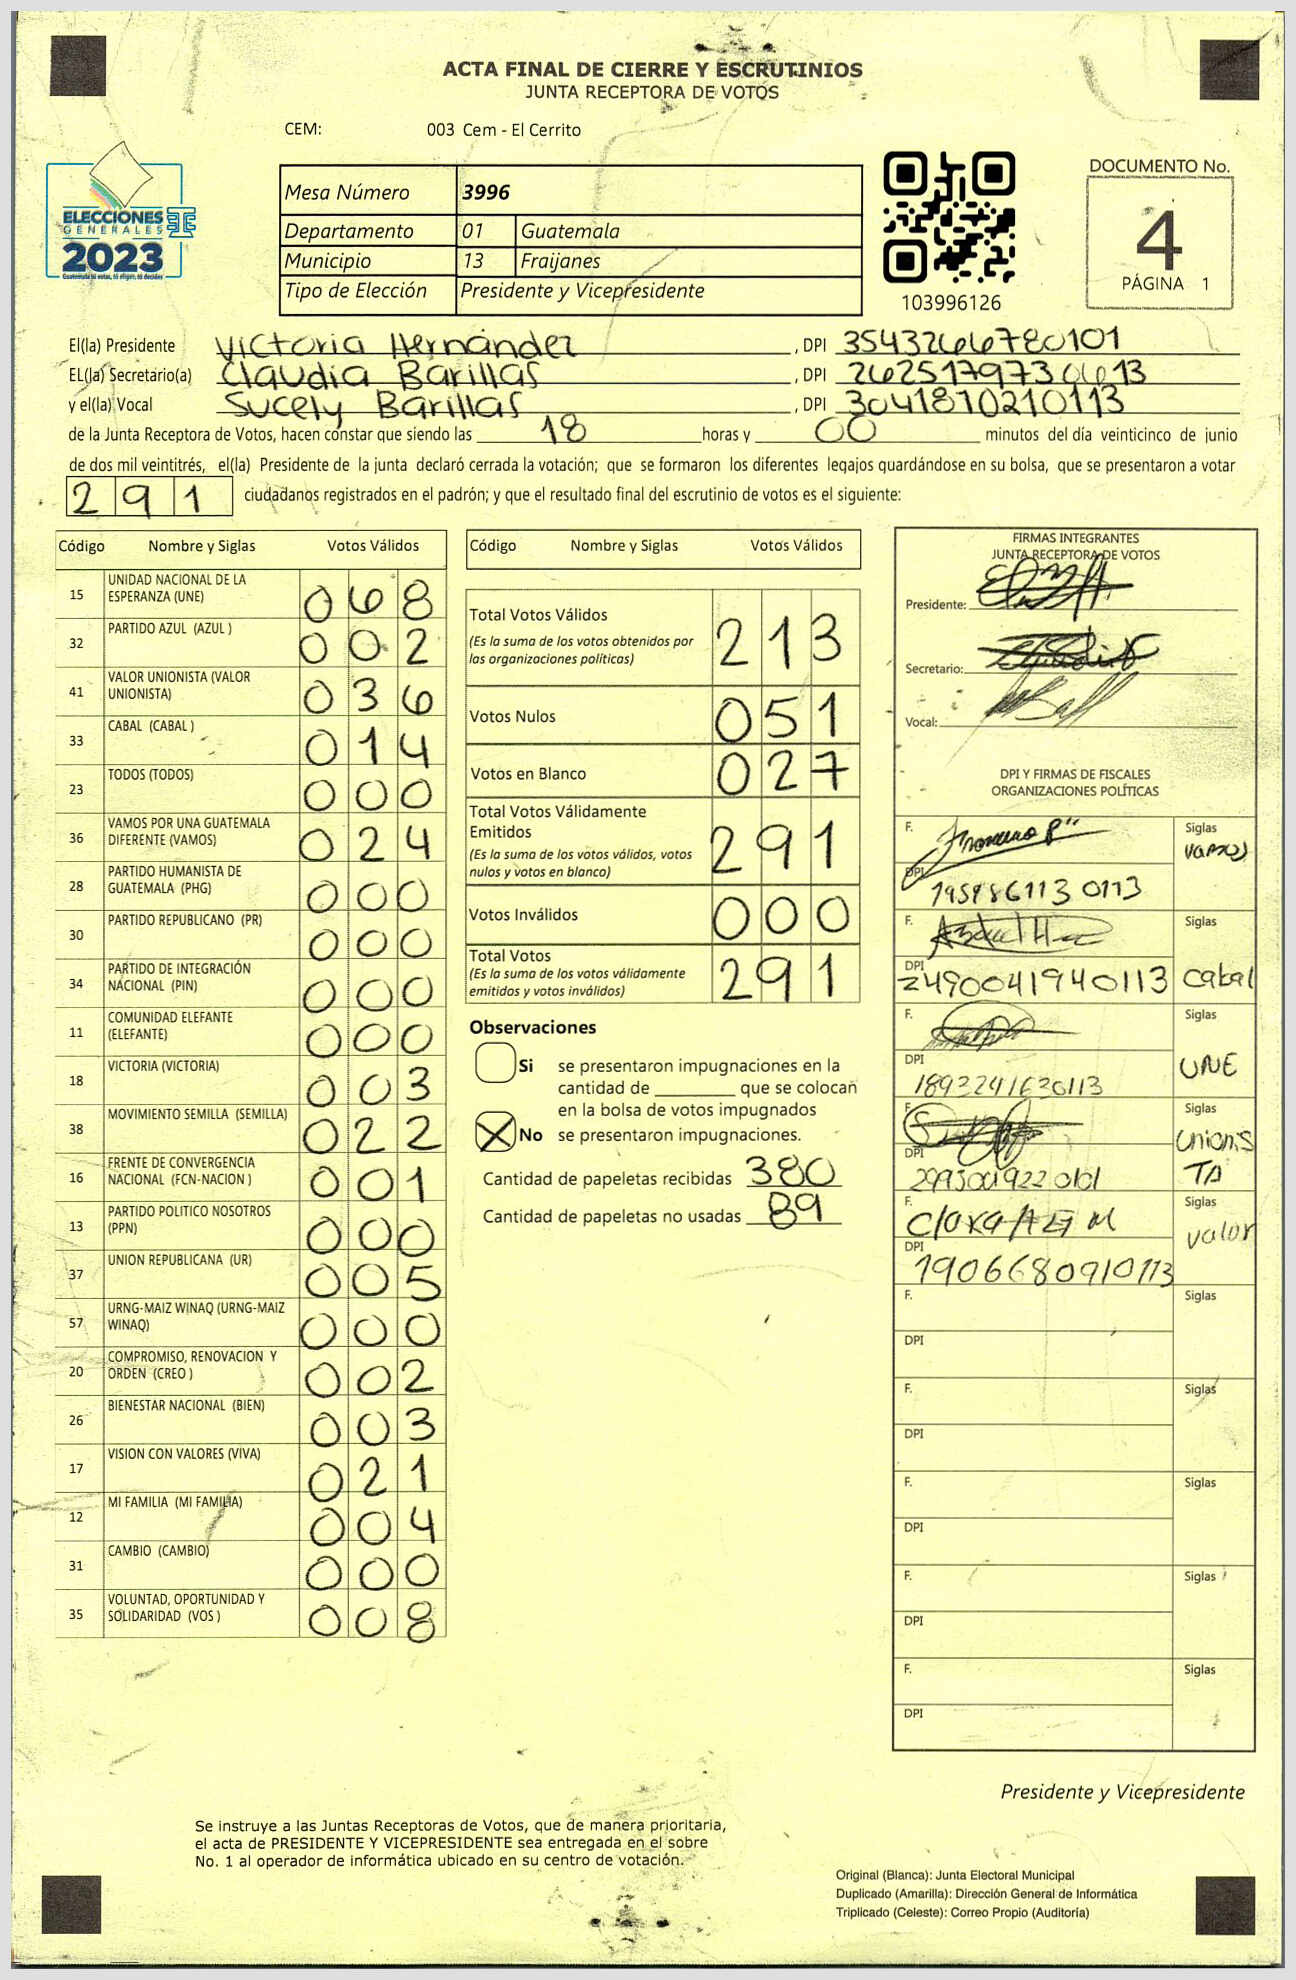 ACTA FINAL DE CIERRE Y ESCRUTINIOS
JUNTA RECEPTORA DE VOTOS
CEM: 003 Cem - El Cerrito
ELECCIONES
GENERALES
2023
Guatemala tú votas, tú eliges, tú decides
Mesa Número 3996
Departamento 01 Guatemala
Municipio 13 Fraijanes
Tipo de Elección Presidente y Vicepresidente
103996126
DOCUMENTO No.
4
PÁGINA 1
El(la) Presidente Victoria Hernández, DPI 3543266780101
EL(la) Secretario(a) Claudia Barillas, DPI 2625179730613
y el(la) Vocal Sucely Barillas, DPI 3041810210113
de la Junta Receptora de Votos, hacen constar que siendo las 18 horas y 00 minutos del día veinticinco de junio
de dos mil veintitrés, el(la) Presidente de la junta declaró cerrada la votación; que se formaron los diferentes legajos quardándose en su bolsa, que se presentaron a votar
291 ciudadanos registrados en el padrón; y que el resultado final del escrutinio de votos es el siguiente:
Código Nombre y Siglas Votos Válidos
15 UNIDAD NACIONAL DE LA ESPERANZA (UNE) 068
32 PARTIDO AZUL (AZUL ) 002
41 VALOR UNIONISTA (VALOR UNIONISTA) 036
33 CABAL (CABAL ) 014
23 TODOS (TODOS) 000
36 VAMOS POR UNA GUATEMALA DIFERENTE (VAMOS) 024
28 PARTIDO HUMANISTA DE GUATEMALA (PHG) 000
30 PARTIDO REPUBLICANO (PR) 000
34 PARTIDO DE INTEGRACIÓN NACIONAL (PIN) 000
11 COMUNIDAD ELEFANTE (ELEFANTE) 000
18 VICTORIA (VICTORIA) 003
38 MOVIMIENTO SEMILLA (SEMILLA) 022
16 FRENTE DE CONVERGENCIA NACIONAL (FCN-NACION ) 001
13 PARTIDO POLITICO NOSOTROS (PPN) 000
37 UNION REPUBLICANA (UR) 005
57 URNG-MAIZ WINAQ (URNG-MAIZ WINAQ) 000
20 COMPROMISO, RENOVACION Y ORDEN (CREO ) 002
26 BIENESTAR NACIONAL (BIEN) 003
17 VISION CON VALORES (VIVA) 021
12 MI FAMILIA (MI FAMILIA) 004
31 CAMBIO (CAMBIO) 000
35 VOLUNTAD, OPORTUNIDAD Y SOLIDARIDAD (VOS ) 008
Código Nombre y Siglas Votos Válidos
Total Votos Válidos 213
(Es la suma de los votos obtenidos por
las organizaciones políticas)
Votos Nulos 051
Votos en Blanco 027
Total Votos Válidamente
Emitidos 291
(Es la suma de los votos válidos, votos
nulos y votos en blanco)
Votos Inválidos 000
Total Votos 291
(Es la suma de los votos válidamente
emitidos y votos inválidos)
Observaciones
Si se presentaron impugnaciones en la
cantidad de ________ que se colocan
en la bolsa de votos impugnados
No se presentaron impugnaciones.
Cantidad de papeletas recibidas 380
Cantidad de papeletas no usadas 89
FIRMAS INTEGRANTES
JUNTA RECEPTORA DE VOTOS
Presidente:
Secretario:
Vocal:
DPI Y FIRMAS DE FISCALES
ORGANIZACIONES POLÍTICAS
F. Siglas
vamos
DPI 1959861130113
F. Siglas
DPI 2490041940113 Cabal
F. Siglas
UNE
DPI 1893241630113
F. Siglas
unionis
TA
DPI
F. Siglas
valor
DPI 1906680910113
F. Siglas
DPI
F. Siglas
DPI
F. Siglas
DPI
F. Siglas
DPI
F. Siglas
DPI
Presidente y Vicepresidente
Se instruye a las Juntas Receptoras de Votos, que de manera prioritaria,
el acta de PRESIDENTE Y VICEPRESIDENTE sea entregada en el sobre
No. 1 al operador de informática ubicado en su centro de votación.
Original (Blanca): Junta Electoral Municipal
Duplicado (Amarilla): Dirección General de Informática
Triplicado (Celeste): Correo Propio (Auditoría)